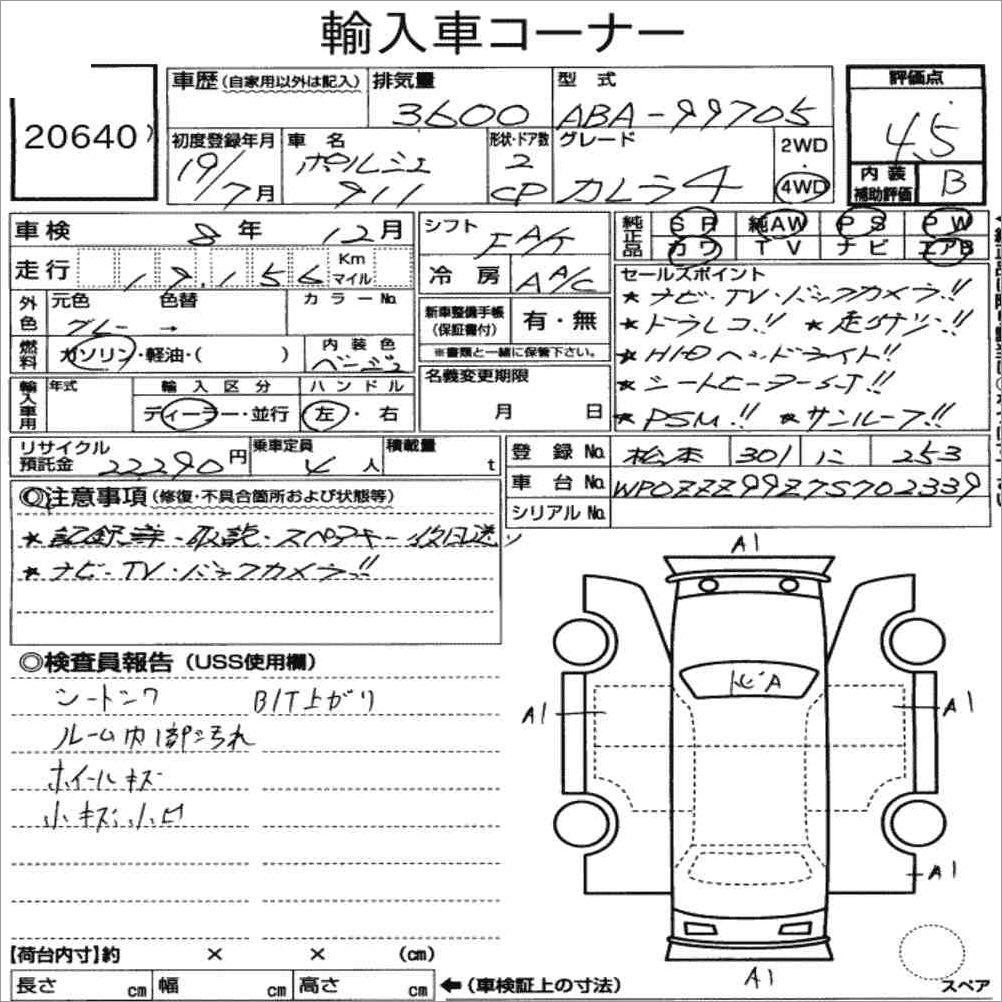 輸入車コーナー
20640
車歴 (自家用以外は記入) 排気量 型式
3600 ABA-99705
初度登録年月 車名 形状・ドア数 グレード
19/7月 ポルシェ 911 2 CP カレラ4 2WD・4WD
評価点
4.5
内装補助評価 B
車検 8年 12月
走行 19,156 Km マイル
外色 元色 色替 カラーNo.
グレー →
燃料 ガソリン・軽油・( ) 内装色 ベージュ
輸入車用 年式 輸入区分 ハンドル
ディーラー・並行 左・右
シフト FA/T
冷房 AA/C
新車整備手帳(保証書付) 有・無
※書類と一緒に保管下さい。
名義変更期限
月 日
純正品 SR 純AW PS PW
カワ TV ナビ エアB
セールスポイント
★ナビ・TV・バックカメラ!!
★ドラレコ!! ★走りサソ!!
★HIDヘッドライト!!
★シートヒーター
★PSM!! ★サンルーフ!!
リサイクル預託金 22290円 乗車定員 4人 積載量 t
登録No. 松本 301 に 253
車台No. WP0ZZZ99Z7S702339
シリアルNo.
◎注意事項 (修復・不具合箇所および状態等)
★記録簿・取説・スペアキー後日送り
★ナビ・TV・バックカメラ!!
◎検査員報告 (USS使用欄)
シートシワ B/T上がり
ルーム内部汚れ
ホイールキズ
小キズ、小凹
A1
トビA
A1 A1
A1
A1
【荷台内寸】約 × × (cm)
長さ cm 幅 cm 高さ cm ←(車検証上の寸法)
スペア